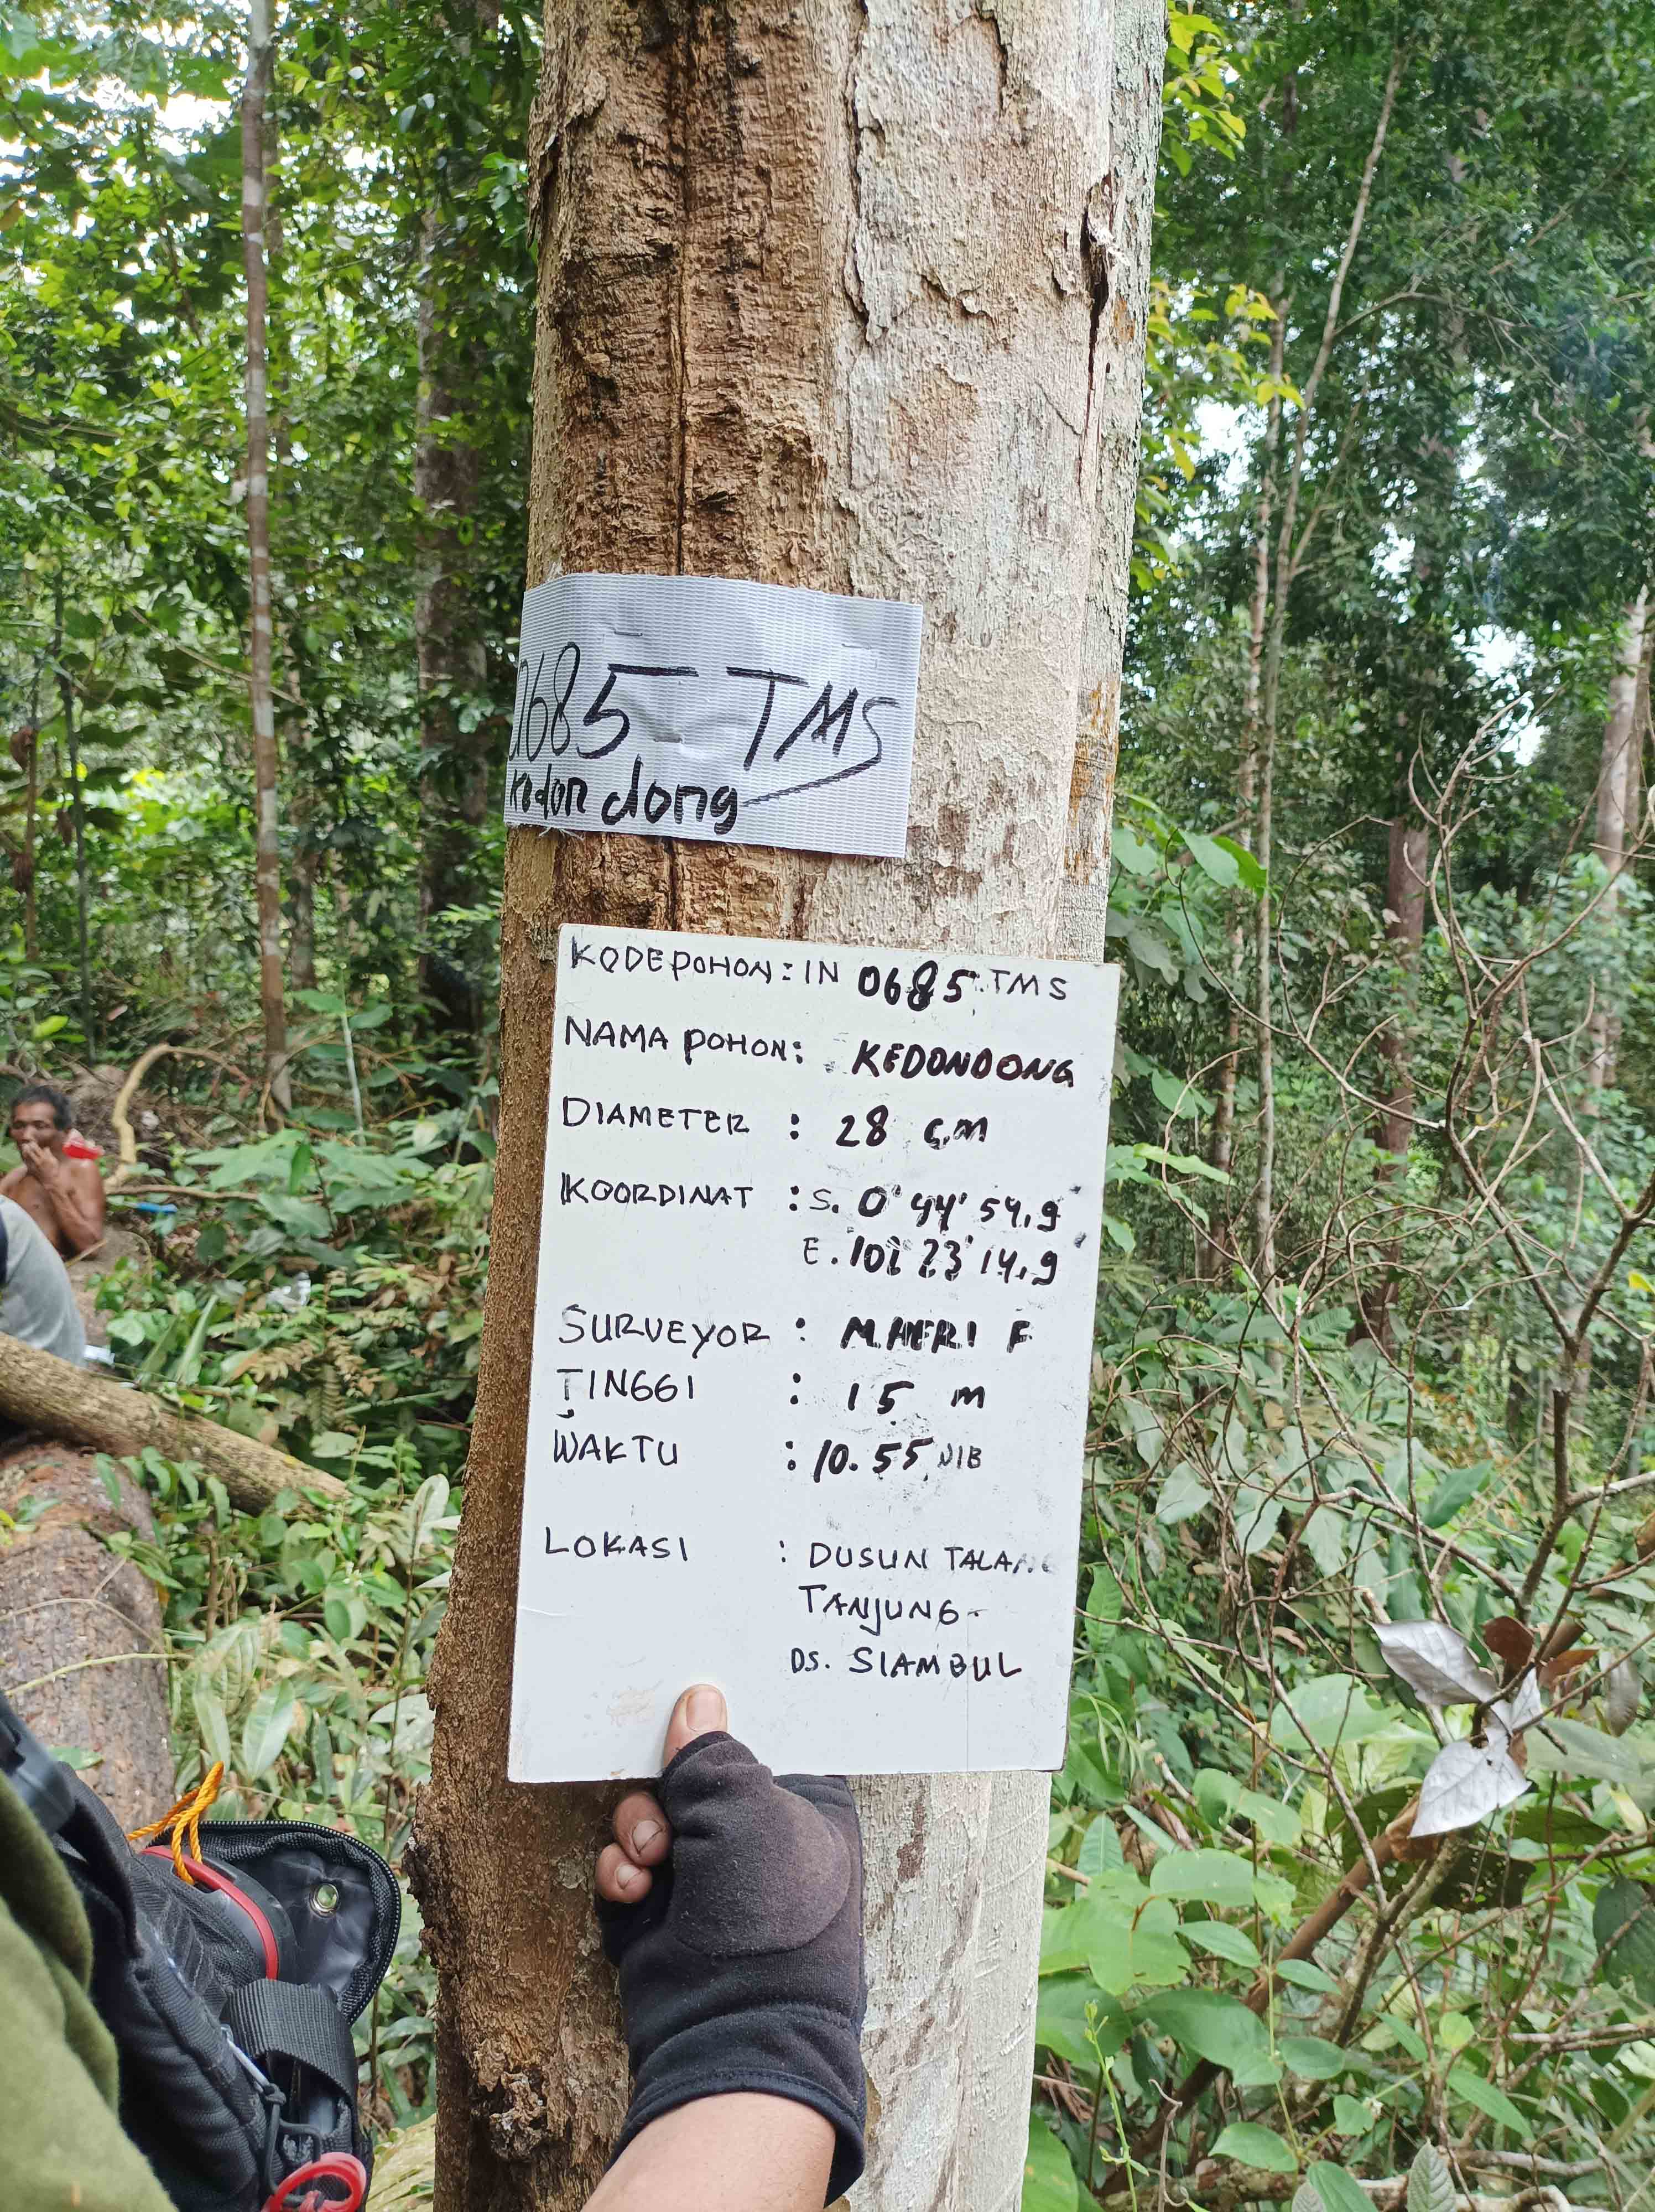 0685 TMS
kedondong
KODE POHON : IN 0685.TMS
NAMA POHON : KEDONDONG
DIAMETER : 28 cm
KOORDINAT : S. 0° 44' 54,9"
E. 102° 23' 14,9
SURVEYOR : M.HERI F
TINGGI : 15 m
WAKTU : 10.55 WIB
LOKASI : DUSUN TALANG
TANJUNG-
DS. SIAMBUL